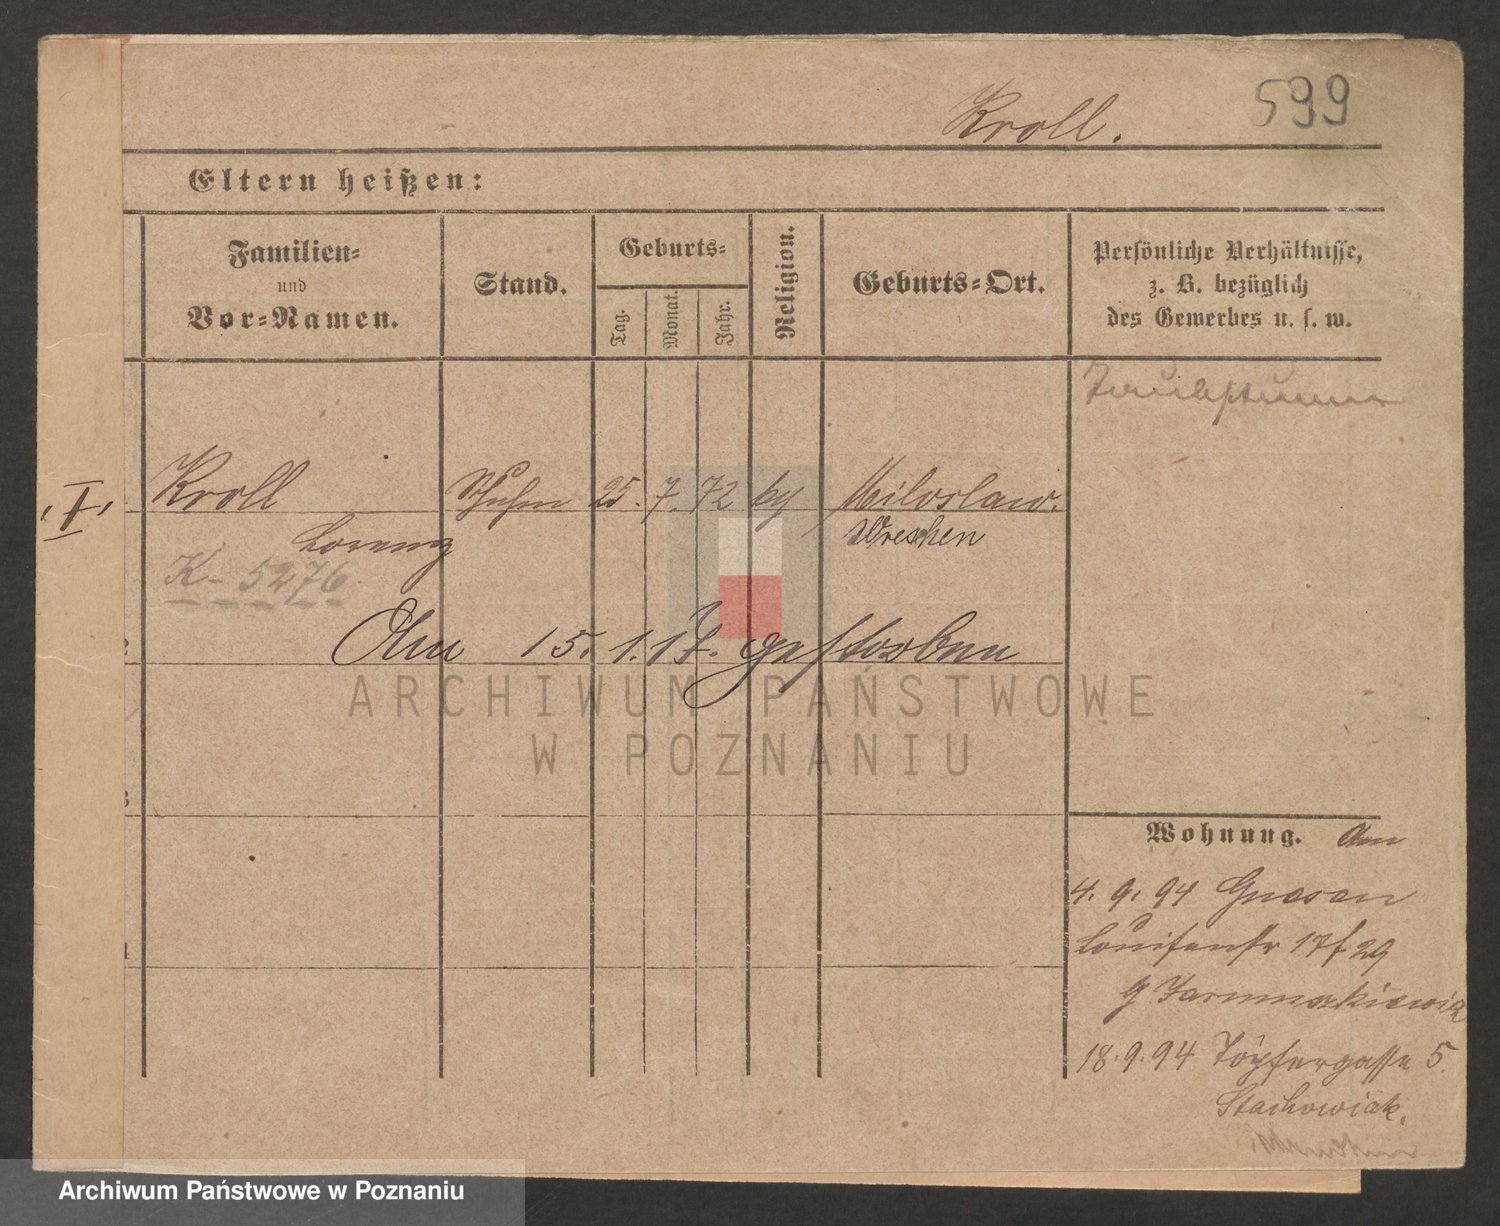 599
Kroll.
Eltern heißen:
Familien-
und
Vor-Namen.
Stand.
Geburts-
Tag.
Monat.
Jahr.
Religion.
Geburts-Ort.
Persönliche Verhältnisse,
z. B. bezüglich
des Gewerbes u. s. w.
Taubstumm
I
Kroll
Schuhm 25. 7. 72 kg Miloslaw.
Lorenz
Wreschen
K-5276
Am 15.1.17. gestorben
2
3
4
Wohnung. Am
4. 9. 94 Gnesen
Louisenstr 17 f 29
18.9.94 Töpfergasse 5.
Stachowiak.
ARCHIWUM PAŃSTWOWE
W POZNANIU
Archiwum Państwowe w Poznaniu